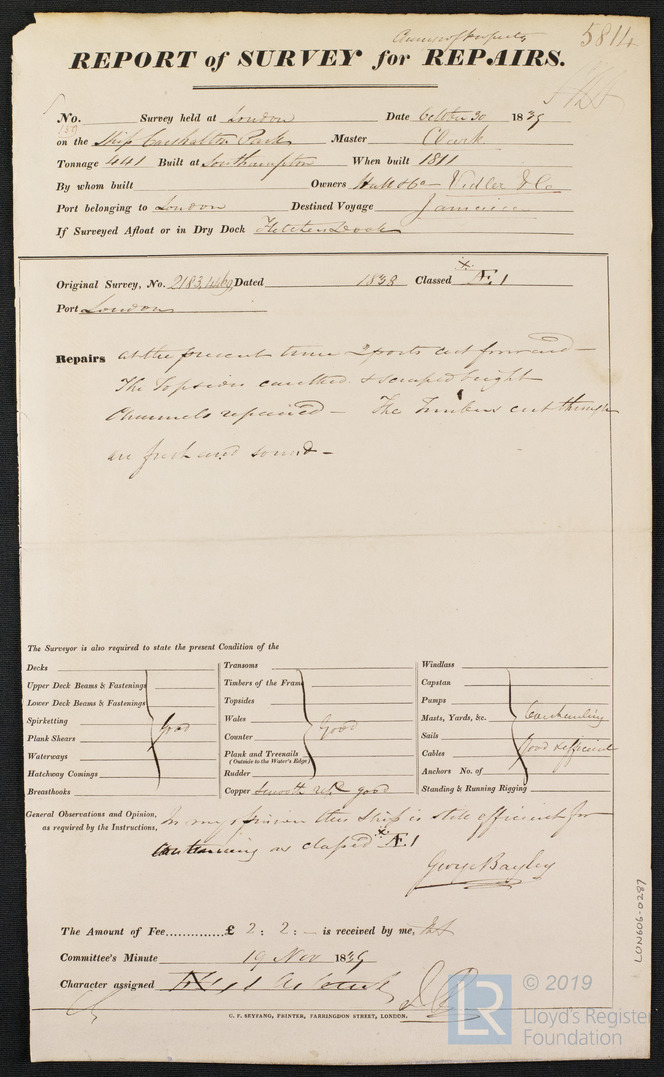 5814
REPORT of SURVEY for REPAIRS.
No. Survey held at London Date October 30 1839
on the Ship Carshalton Park Master Clark
Tonnage 441 Built at Southampton When built 1811
By whom built Owners Hall & Co - Vidler & Co
Port belonging to London Destined Voyage Jamaica
If Surveyed Afloat or in Dry Dock Fletchers Dock
Original Survey, No. Dated 1838 Classed Æ 1
Port London
Repairs at the present time 2 ports cut forward -
The Topsides caulked & scraped bright
Channels repaired - The Timbers cut through
are fresh and sound -
The Surveyor is also required to state the present Condition of the
Decks
Upper Deck Beams & Fastenings
Lower Deck Beams & Fastenings
Spirketting Good
Plank Shears
Waterways
Hatchway Comings
Breasthooks
Transoms
Timbers of the Frame
Topsides
Wales Good
Counter
Plank and Treenails
(Outside to the Water's Edge)
Rudder
Copper good
Windlass
Capstan
Pumps
Masts, Yards, &c.
Sails Good & efficient
Cables
Anchors No. of
Standing & Running Rigging
General Observations and Opinion, In my opinion this Ship is still efficient for
as required by the Instructions, continuing as classed Æ 1
George Bayley
The Amount of Fee..............£ 2 : 2 : - is received by me,
Committee's Minute 19 Nov 1839
Character assigned
C. F. SEYFANG, PRINTER, FARRINGDON STREET, LONDON.
LON606-0287
LR
© 2019
Lloyd's Register
Foundation